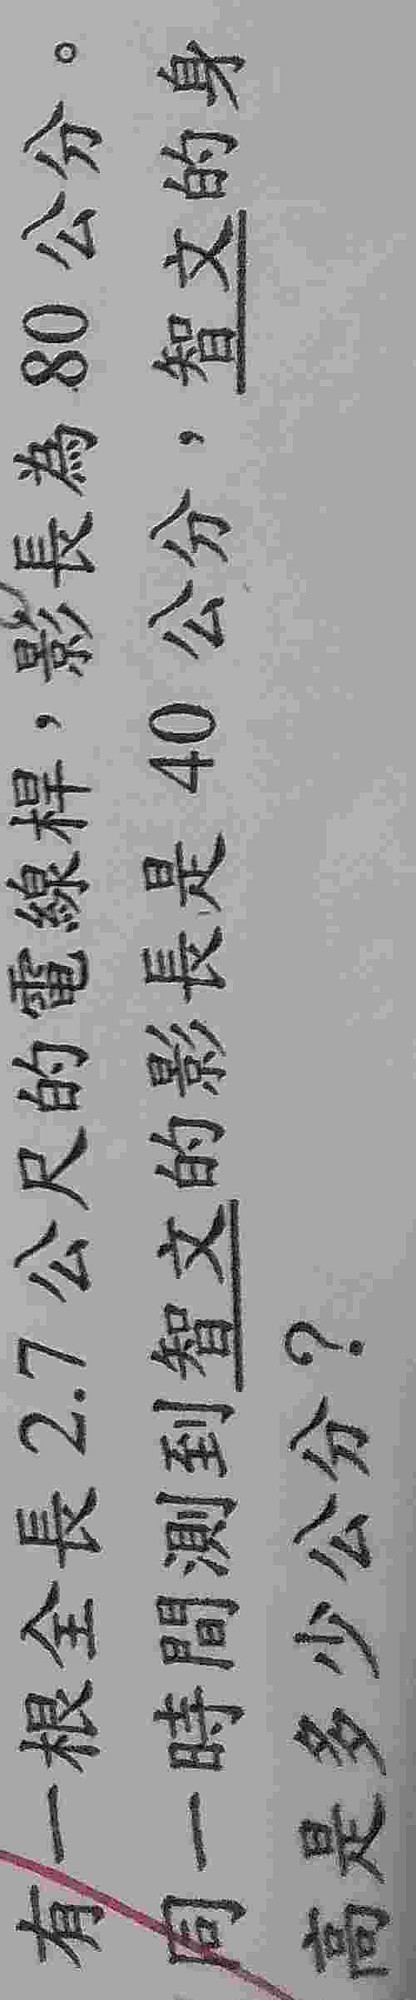 有一根全長 2.7 公尺的電線桿，影長為 80 公分。
同一時間測到智文的影長是 40 公分，智文的身
高是多少公分？